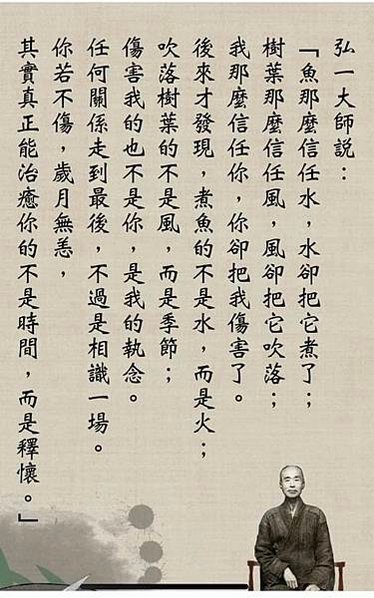 弘一大師說：
「魚那麼信任水，水卻把它煮了；
樹葉那麼信任風，風卻把它吹落；
我那麼信任你，你卻把我傷害了。
後來才發現，煮魚的不是水，而是火；
吹落樹葉的不是風，而是季節；
傷害我的也不是你，是我的執念。
任何關係走到最後，不過是相識一場。
你若不傷，歲月無恙，
其實真正能治癒你的不是時間，而是釋懷。」